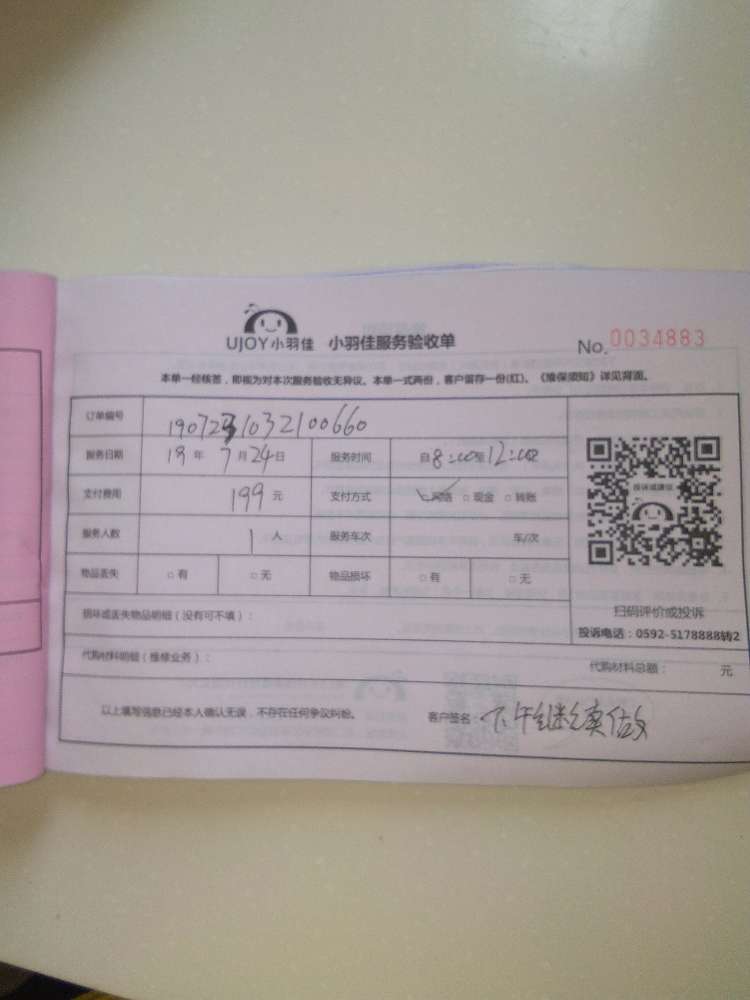 UJOY小羽佳 小羽佳服务验收单 No. 0034883
本单一经核签，即视为对本次服务验收无异议。本单一式两份，客户留存一份(红)。《维保须知》详见背面。
订单编号 1907231032100660
服务日期 19年 7月 24日 服务时间 自8:00至12:00
支付费用 199元 支付方式 ☑网络 □现金 □转账
服务人数 1人 服务车次 车/次
物品丢失 □有 □无 物品损坏 □有 □无
投诉或建议
扫码评价或投诉
投诉电话：0592-5178888转2
损坏或丢失物品明细（没有可不填）：
代购材料明细（维修业务）： 代购材料总额： 元
以上填写信息已经本人确认无误，不存在任何争议纠纷。 客户签名：下午继续做